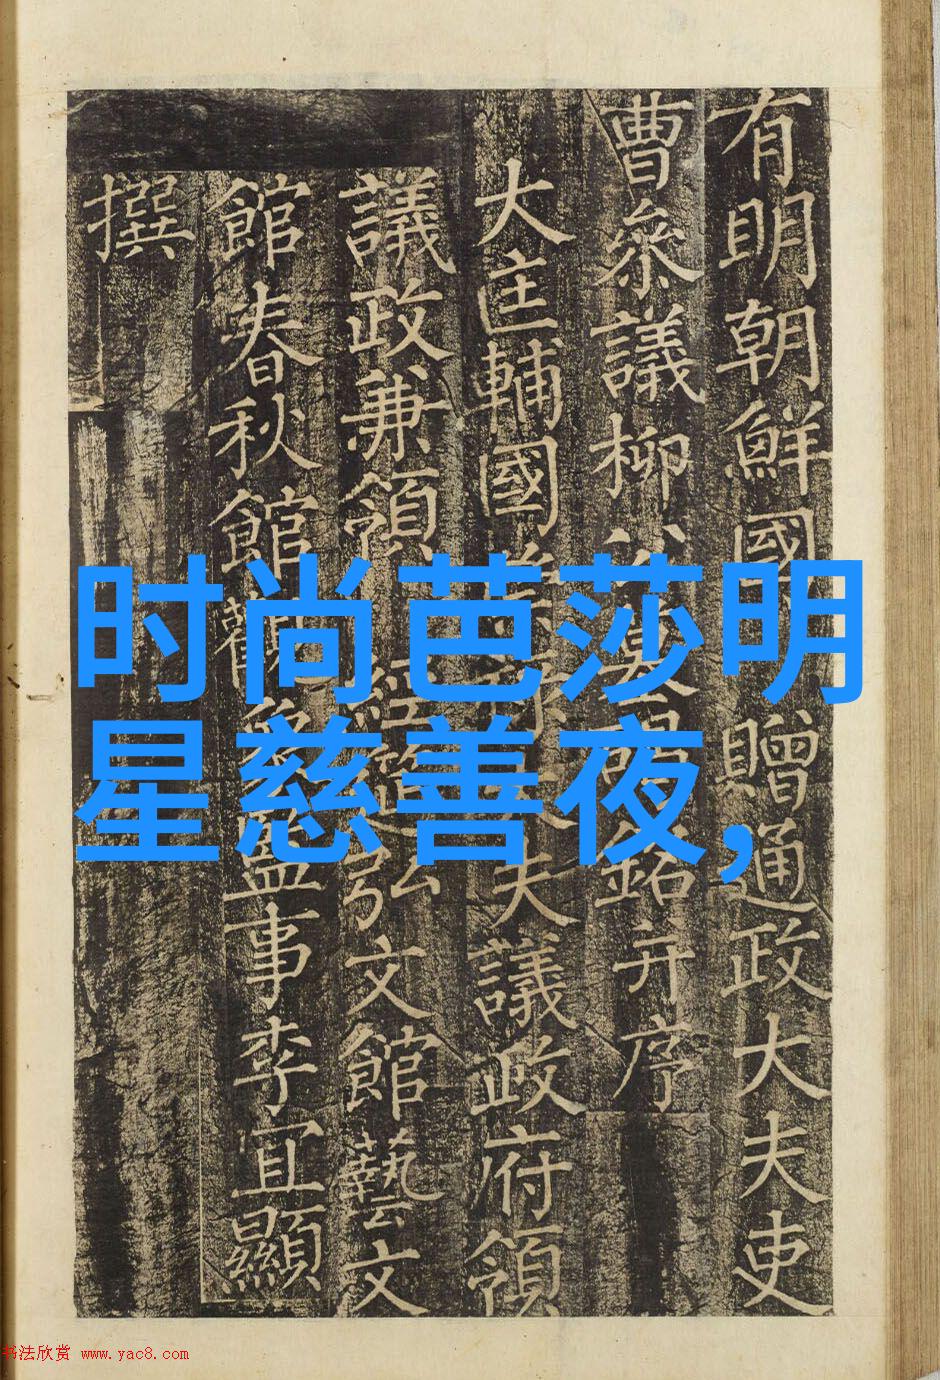 有明朝鮮國 贈通政大夫吏
曹參議柳公墓銘并序
大匡輔國夫議政府領
議政兼領 經筵弘文館藝文
館春秋館觀象監事李宜顯
撰
时尚芭莎明
星慈善夜,
书法欣赏 www.yac8.com